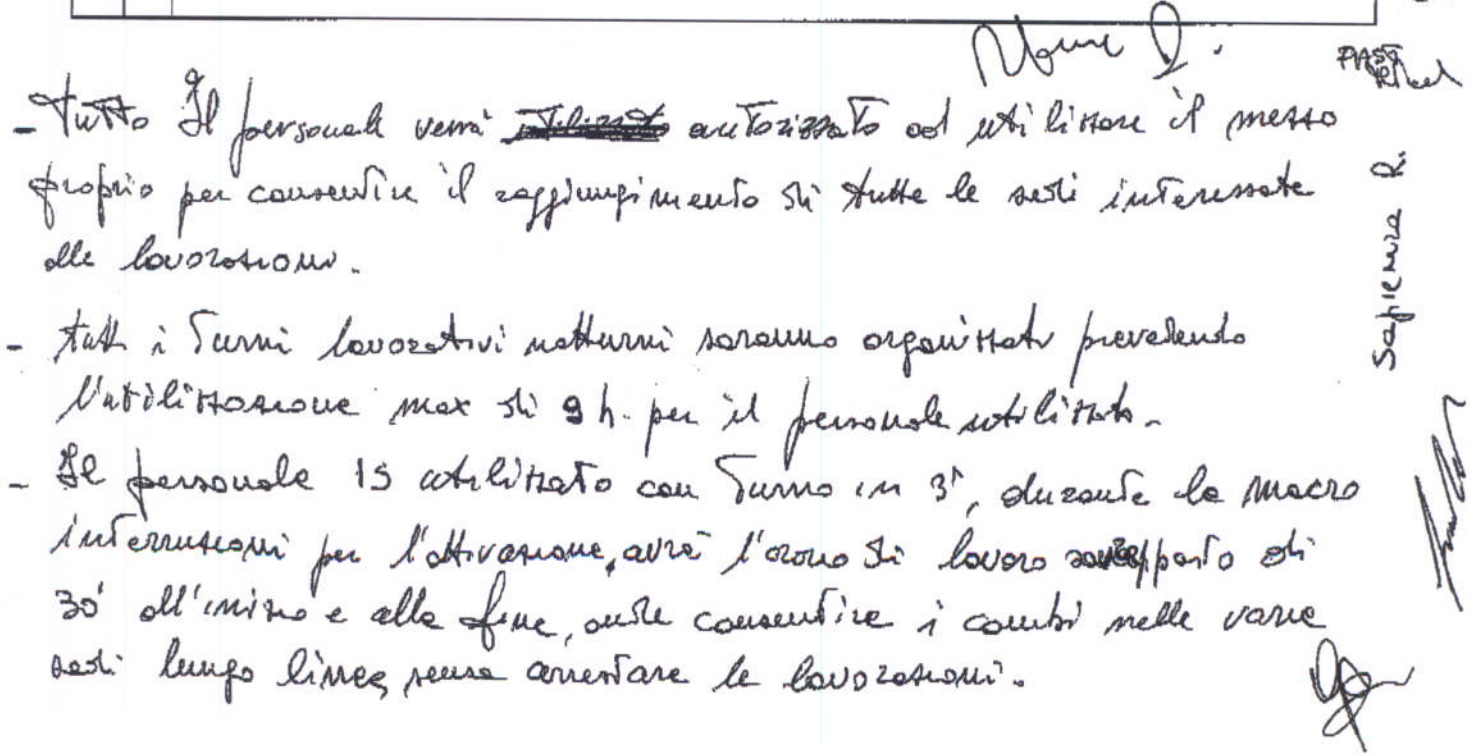 - Tutto Il personale verrà autorizzato ad utilizzare il mezzo
proprio per consentire il raggiungimento di tutte le sedi interessate
alle lavorazioni.
- tutti i Turni lavorativi notturni saranno organizzati prevedendo
l'utilizzazione max di 9 h. per il personale utilizzato.
- Il personale IS utilizzato con Turno in 3ª, durante le macro
interruzioni per l'attivazione, avrà l'orario di lavoro sovrapposto di
30' all'inizio e alla fine, onde consentire i cambi nelle varie
sedi lungo linea, senza arrestare le lavorazioni.
Sapienza R.